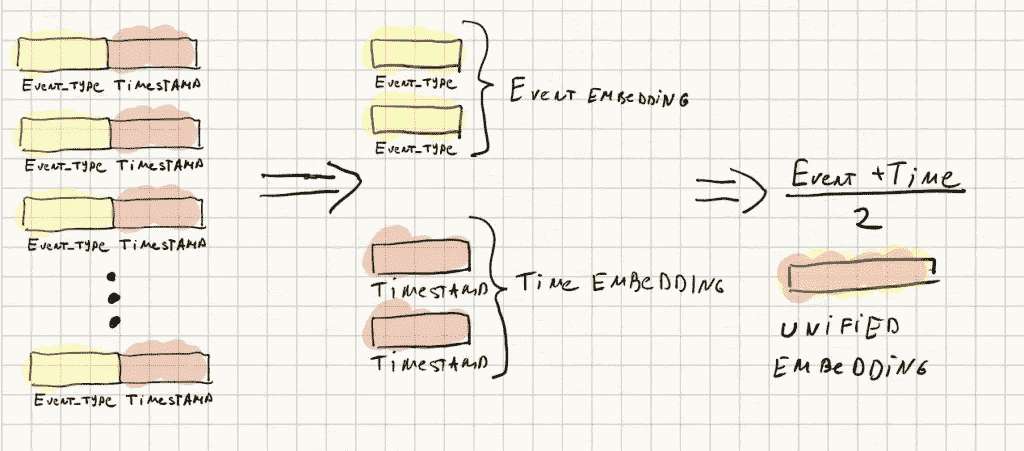 EVENT_TYPE TIMESTAMP
EVENT_TYPE TIMESTAMP
EVENT_TYPE TIMESTAMP
EVENT_TYPE TIMESTAMP
EVENT_TYPE
EVENT_TYPE
EVENT EMBEDDING
TIMESTAMP
TIMESTAMP
TIME EMBEDDING
EVENT + TIME
2
UNIFIED
EMBEDDING